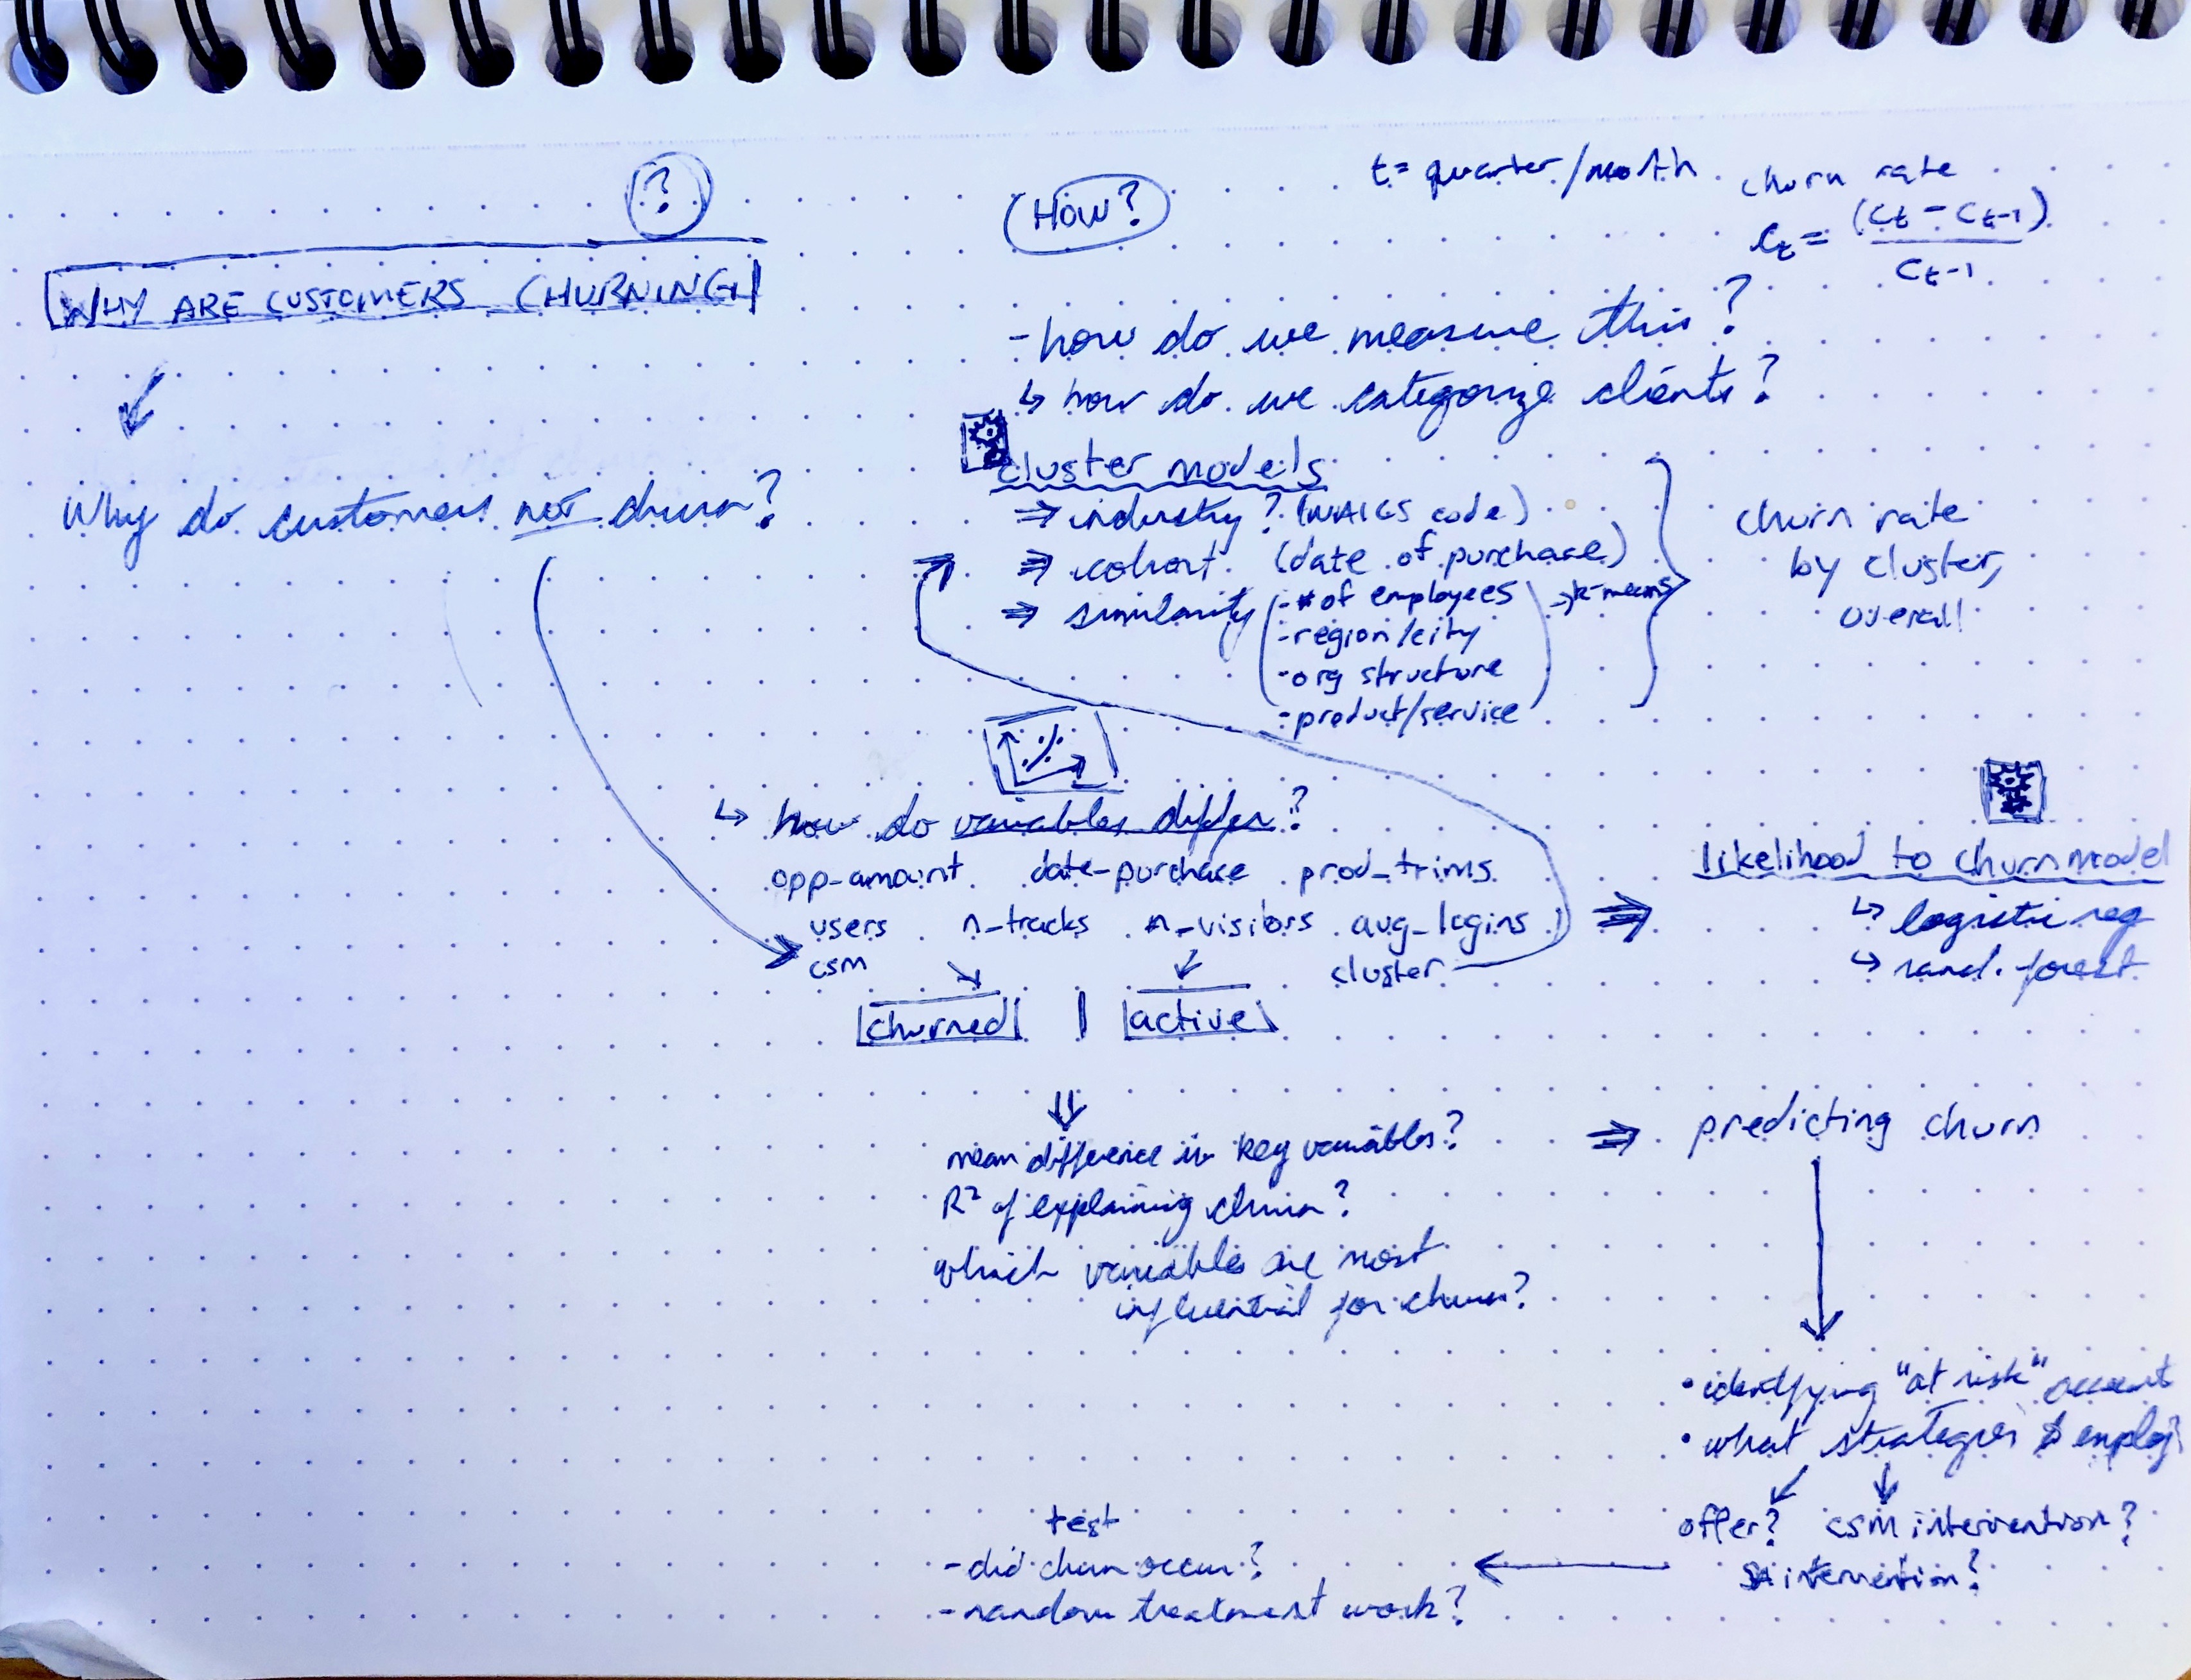 ?
WHY ARE CUSTOMERS CHURNING
Why do customers not churn?
How?
t = quarter/month
churn rate
c_t = (C_t - C_t-1)
C_t-1
- how do we measure this?
↳ how do we categorize clients?
cluster models
⇒ industry? (NAICS code)
⇒ cohort (date of purchase)
⇒ similarity
- # of employees
- region/city
- org structure
- product/service
→ k-means
churn rate
by cluster,
overall
↳ how do variables differ?
opp-amount date-purchase prod_trims
users n-tracks n-visitors avg_logins
csm cluster
churned | active
likelihood to churn model
↳ logistic reg
↳ rand. forest
mean difference in key variables?
R² of explaining churn?
which variables are most
influential for churn?
⇒ predicting churn
• identifying "at risk" account
• what strategies employ
offer? csm intervention?
intervention?
test
- did churn occur?
- random treatment work?